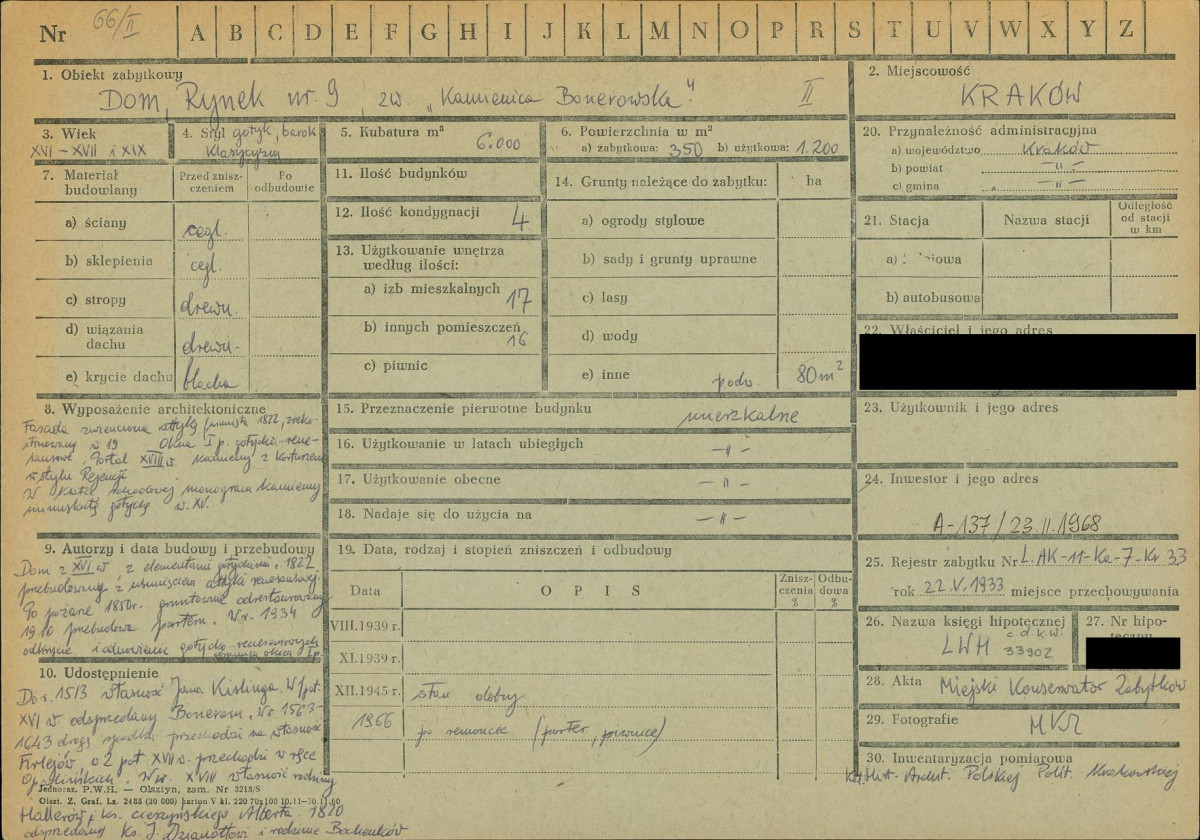 Nr 66/II A B C D E F G H I J K L M N O P R S T U V W X Y Z
1. Obiekt zabytkowy
Dom, Rynek nr. 9, zw „Kamienica Bonerowska" II
2. Miejscowość
KRAKÓW
3. Wiek
XVI – XVII i XIX
4. Styl gotyk, barok
klasycyzm
5. Kubatura m³
6.000
6. Powierzchnia w m²
a) zabytkowa: 350 b) użytkowa: 1.200
20. Przynależność administracyjna
a) województwo Kraków
b) powiat –"–
c) gmina –"–
7. Materiał budowlany
Przed zniszczeniem
Po odbudowie
a) ściany cegl.
b) sklepienia cegl.
c) stropy drewn.
d) wiązania dachu drewn.
e) krycie dachu blacha
11. Ilość budynków
12. Ilość kondygnacji 4
13. Użytkowanie wnętrza
według ilości:
a) izb mieszkalnych 17
b) innych pomieszczeń 16
c) piwnic
14. Grunty należące do zabytku: ha
a) ogrody stylowe
b) sady i grunty uprawne
c) lasy
d) wody
e) inne podw. 80 m²
21. Stacja Nazwa stacji Odległość od stacji w km
a)
b) autobusowa
22. Właściciel i jego adres
8. Wyposażenie architektoniczne
Fasada zwieńczona attyką 1822, zreko-
struowany w 19 Okna I p. gotycko-rene-
sansowe. Portal XVIII w. kamienny z kartuszem
w stylu Rejencji.
W klatce schodowej monogram kamienny
minuskułą gotycką w. XV.
15. Przeznaczenie pierwotne budynku mieszkalne
16. Użytkowanie w latach ubiegłych –"–
17. Użytkowanie obecne –"–
18. Nadaje się do użycia na –"–
23. Użytkownik i jego adres
24. Inwestor i jego adres
A-137/23.II.1968
9. Autorzy i data budowy i przebudowy
Dom z XVI w z elementami gotyckimi. 1822
przebudowany z usunięciem attyki renesansowej.
Po pożarze 1850r. gruntownie odrestaurowany
1910 przebudowa parteru. W r. 1934
odkrycie i odnowienie gotycko-renesansowych
obramień okien I p.
19. Data, rodzaj i stopień zniszczeń i odbudowy
Data OPIS Zniszczenia % Odbudowa %
VIII.1939 r.
XI.1939 r.
XII.1945 r. stan dobry
1966 po remoncie (parter, piwnice)
25. Rejestr zabytku Nr L.AK-11-Ka-7-Kr 33
rok 22.V.1933 miejsce przechowywania
26. Nazwa księgi hipotecznej
LWH c d k.w. 33902
27. Nr hipoteczny
28. Akta Miejski Konserwator Zabytków
29. Fotografie MKZ
30. Inwentaryzacja pomiarowa
Kat. Hist. Archit. Polskiej Polit. Krakowskiej
10. Udostępnienie
Do r. 1513 własność Jana Kislinga. W I poł.
XVI w. odsprzedany Bonerom. W r. 1563-
1643 drogą spadku przechodzi na własność
Firlejów, o 2 poł XVII w. przechodzi w ręce
Opalińskich. W w. XVIII własność rodziny
Jednoraz. P.W.H. — Olsztyn, zam. Nr 3215/S
Olszt. Z. Graf. Lz. 2485 (30 000) karton V kl. 220 70x100 10.11—30.11.60
Hallerów i ks. cieszyńskiego Alberta. 1820
odsprzedany ks. J. Dzianottowi i rodzinie Bochenków